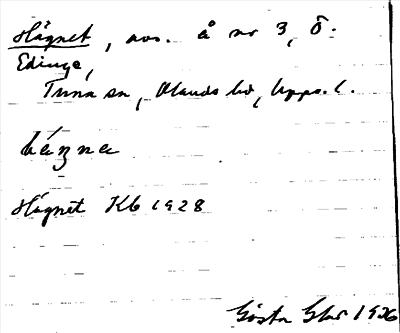 Hägnet, avs. å nr 3, Ö.
Edinge,
Tuna sn, Olands hd, Upps. l.
hägna
Hägnet Kb 1928
Gösta 1936